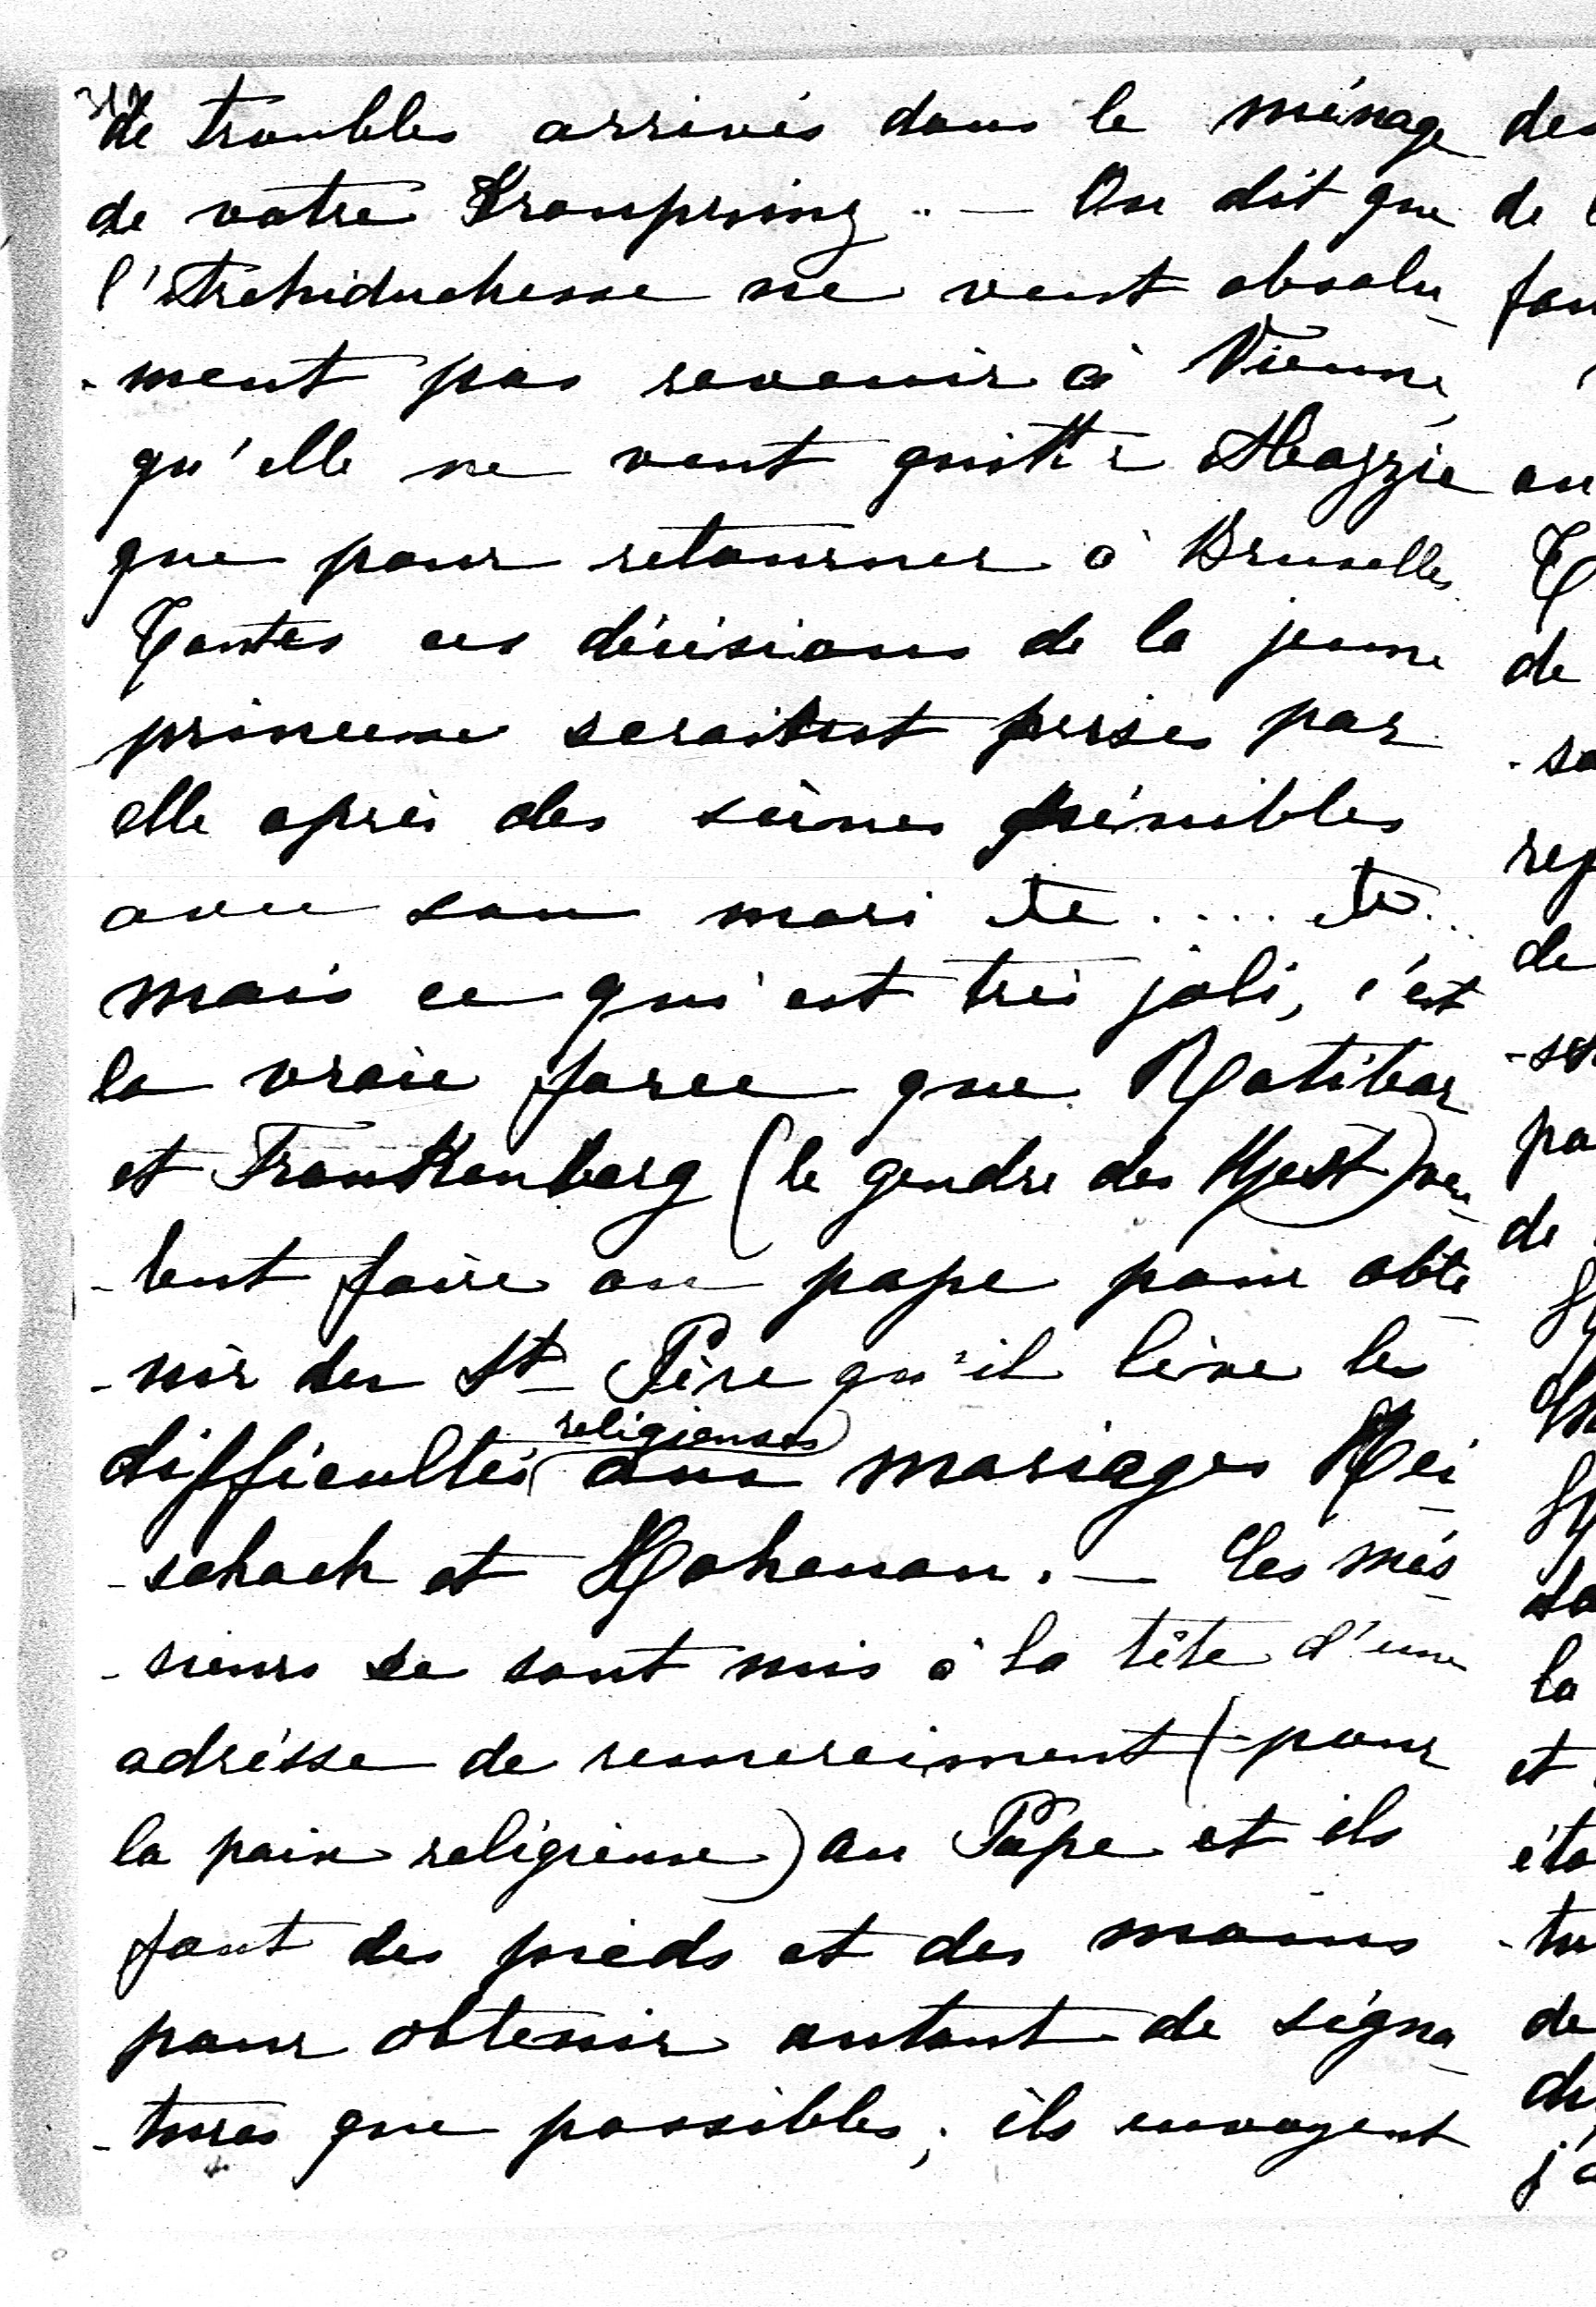 de troubles arrivés dans le ménage
de votre Kronprinz. — On dit que
l'Archiduchesse ne veut absolu-
-ment pas revenir à Vienne,
qu'elle ne veut quitter Abazzie
que pour retourner à Bruxelles.
Toutes ces décisions de la jeune
princesse seraient prises par
elle après des scènes pénibles
avec son mari etc .... etc..
mais ce qui est très joli, c'est
la vraie farce que Ratibor
et Frankenberg (le gendre des Ujest) veu-
-lent faire au pape pour obte-
-nir du St Père qu'il lève les
difficultés religieuses aux mariages Rei-
-schach et Hohenau. — Ces més-
-sieurs se sont mis à la tête d'une
adrésse de remerciment (pour
la paix religieuse) au Pape et ils
font des pieds et des mains
pour obtenir autant de signa-
-tures que possibles; ils envoyent
des
de
fou
au
de
-so
rep
de
pa
de
la
et
éta
-tu
de
du
j'a